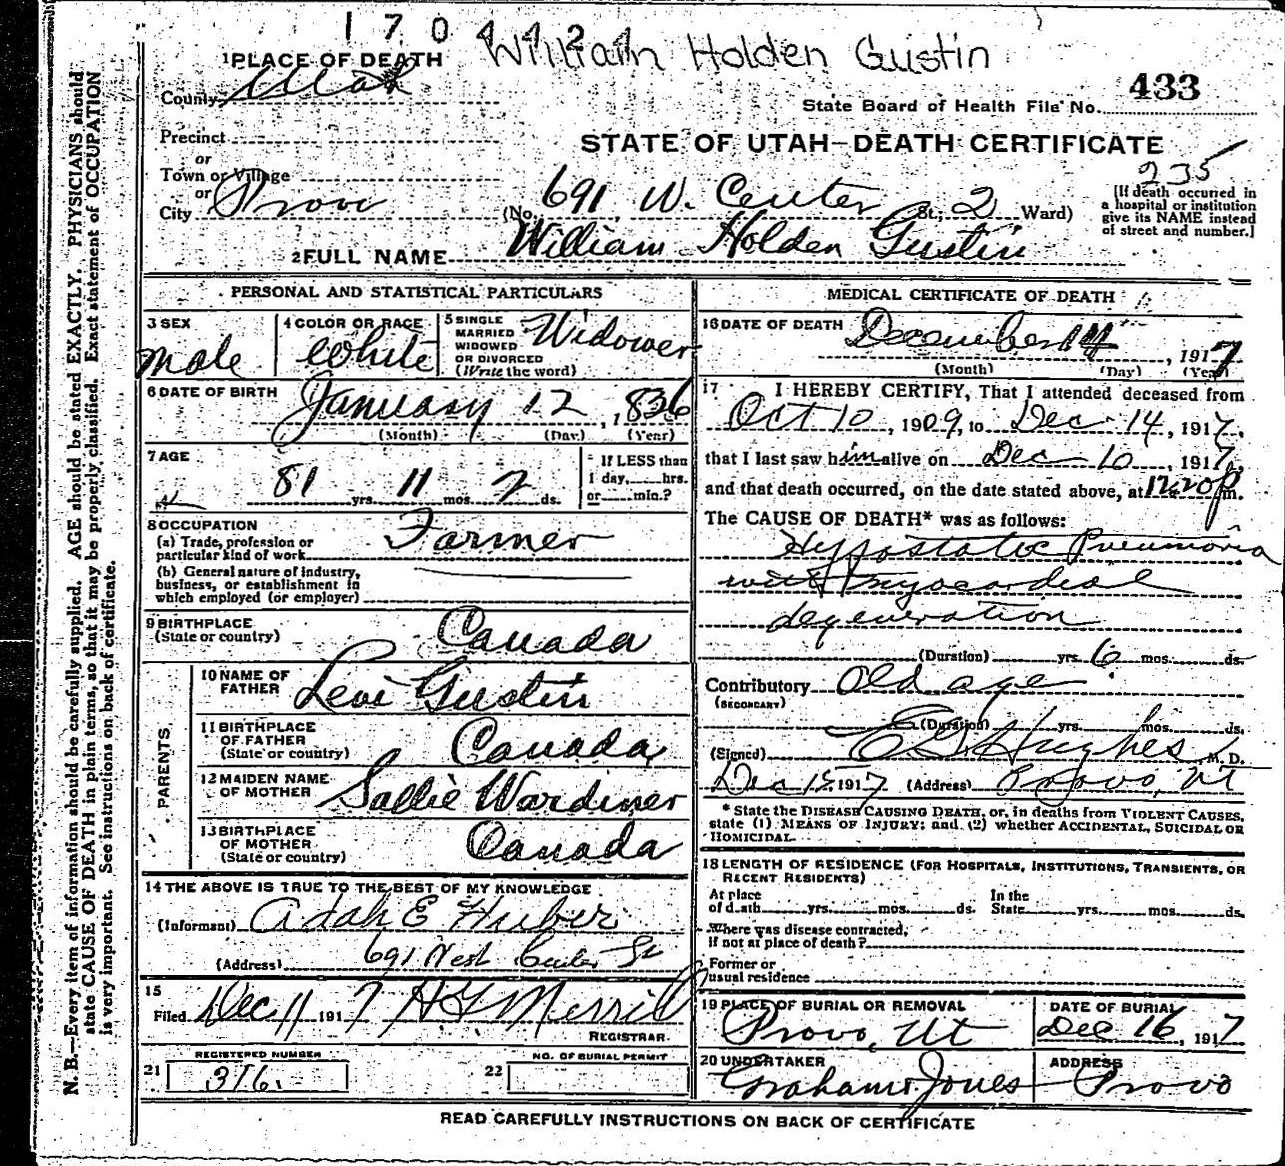 1 7 0 4 4 2 1
William Holden Gustin
1 PLACE OF DEATH
County Utah
433
State Board of Health File No.
Precinct
STATE OF UTAH—DEATH CERTIFICATE
or
Town or Village
or
City Provo
(No. 691 W. Center St.; 2 Ward)
235
[If death occurred in
a hospital or institution
give its NAME instead
of street and number.]
2 FULL NAME William Holden Gustin
PERSONAL AND STATISTICAL PARTICULARS
3 SEX
Male
4 COLOR OR RACE
White
5 SINGLE
MARRIED
WIDOWED
OR DIVORCED
(Write the word)
Widower
6 DATE OF BIRTH January 12, 1836
(Month) (Day) (Year)
7 AGE
81 yrs. 11 mos. 2 ds.
If LESS than
1 day, hrs.
or min.?
8 OCCUPATION
(a) Trade, profession or
particular kind of work Farmer
(b) General nature of industry,
business, or establishment in
which employed (or employer)
9 BIRTHPLACE
(State or country) Canada
PARENTS
10 NAME OF
FATHER Levi Gustin
11 BIRTHPLACE
OF FATHER
(State or country) Canada
12 MAIDEN NAME
OF MOTHER Sallie Wardiner
13 BIRTHPLACE
OF MOTHER
(State or country) Canada
14 THE ABOVE IS TRUE TO THE BEST OF MY KNOWLEDGE
(Informant) Adah E Huber
(Address) 691 West Center St
15
Filed Dec 11 1917 H G Merrill
REGISTRAR.
REGISTERED NUMBER
21 316.
NO. OF BURIAL PERMIT
22
MEDICAL CERTIFICATE OF DEATH
16 DATE OF DEATH December 14, 1917
(Month) (Day) (Year)
17 I HEREBY CERTIFY, That I attended deceased from
Oct 10, 1909, to Dec. 14, 1917,
that I last saw him alive on Dec 10, 1917,
and that death occurred, on the date stated above, at 12.20 p m.
The CAUSE OF DEATH* was as follows:
Hypostatic Pneumonia
with myocardial
degeneration
(Duration) yrs. 6 mos. ds.
Contributory Old age
(SECONDARY)
(Duration) yrs. mos. ds.
(Signed) E G Hughes M. D.
Dec 15 1917 (Address) Provo, Ut
* State the DISEASE CAUSING DEATH, or, in deaths from VIOLENT CAUSES,
state (1) MEANS OF INJURY; and (2) whether ACCIDENTAL, SUICIDAL OR
HOMICIDAL.
18 LENGTH OF RESIDENCE (FOR HOSPITALS, INSTITUTIONS, TRANSIENTS, OR
RECENT RESIDENTS)
At place
of death yrs. mos. ds.
In the
State yrs. mos. ds.
Where was disease contracted,
if not at place of death?
Former or
usual residence
19 PLACE OF BURIAL OR REMOVAL
Provo, Ut
DATE OF BURIAL
Dec 16, 1917
20 UNDERTAKER
Graham & Jones
ADDRESS
Provo
READ CAREFULLY INSTRUCTIONS ON BACK OF CERTIFICATE
N. B.—Every item of information should be carefully supplied. AGE should be stated EXACTLY. PHYSICIANS should
state CAUSE OF DEATH in plain terms, so that it may be properly classified. Exact statement of OCCUPATION
is very important. See instructions on back of certificate.